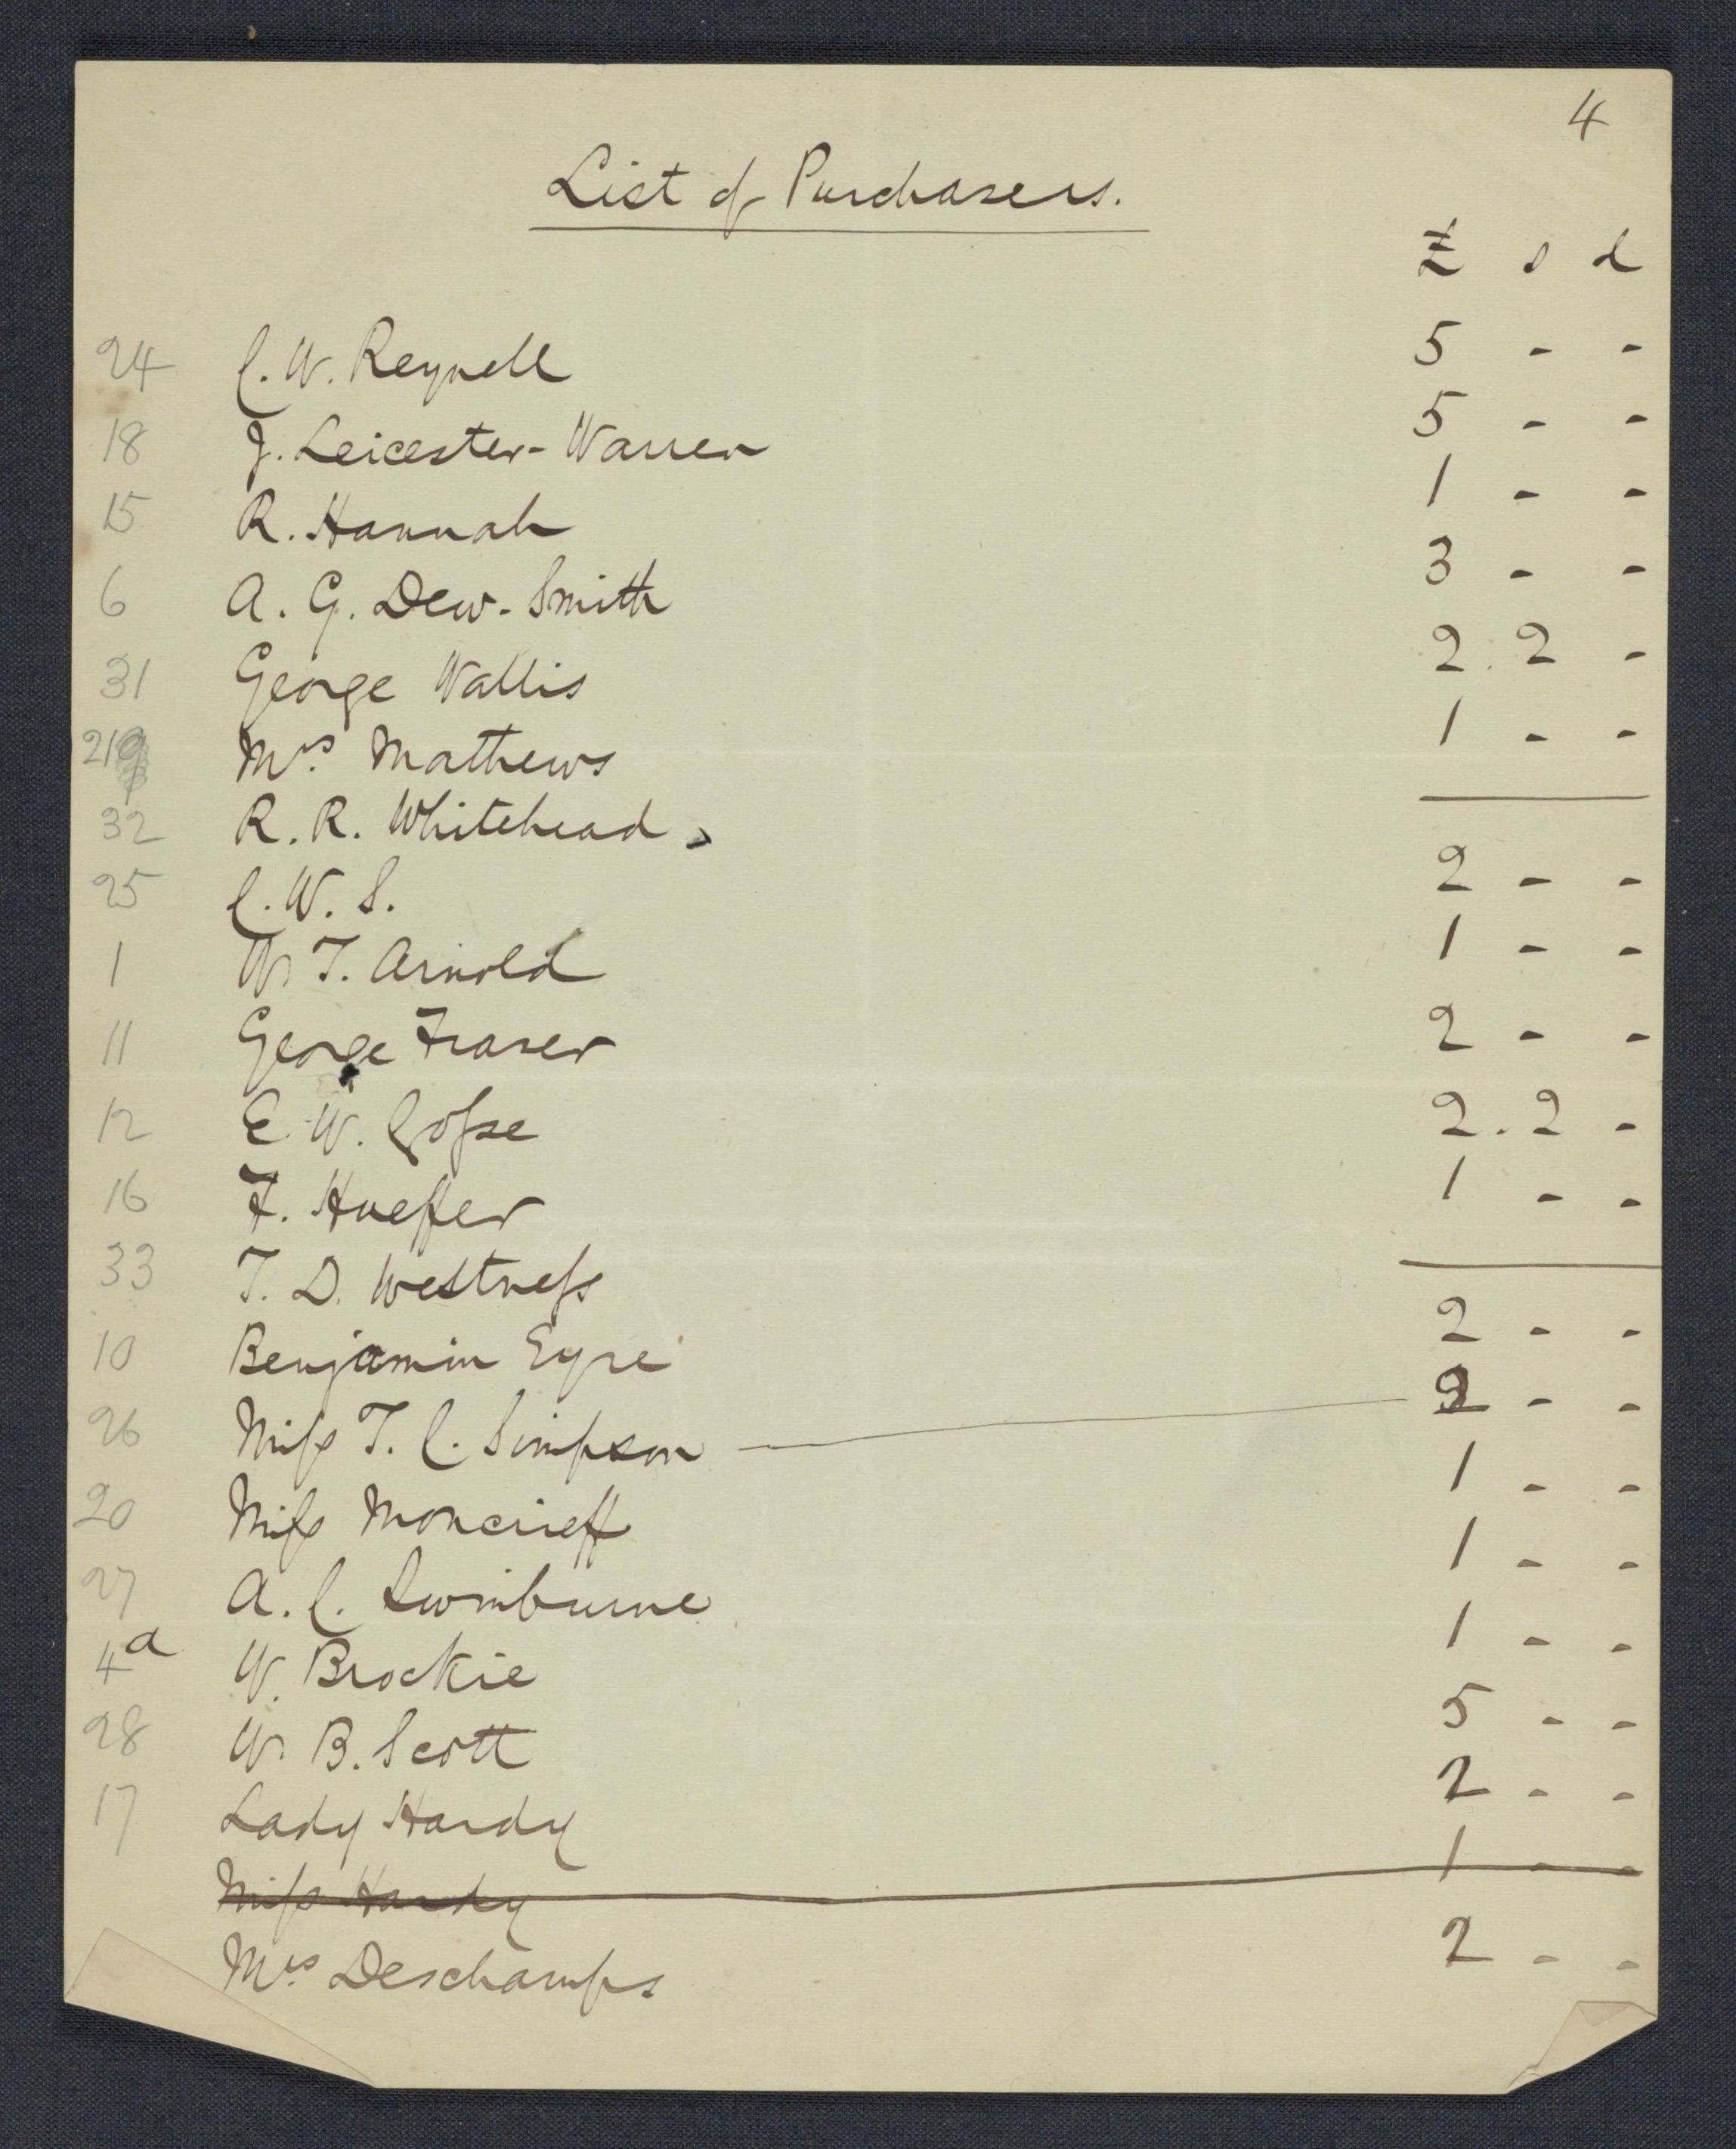 4
List of Purchasers.
£ s d
24 C. W. Reynell 5 - -
18 J. Leicester-Warren 5 - -
15 R. Hannah 1 - -
6 A. G. Dew-Smith 3 - -
31 George Wallis 2. 2 -
Mrs. Mathews 1 - -
32 R. R. Whitehead
25 C. W. S. 2 - -
1 W. T. Arnold 1 - -
11 George Fraser 2 - -
12 E. W. Gosse 2. 2 -
16 F. Hueffer 1 - -
33 T. D. Westness
10 Benjamin Eyre 2 - -
26 Miss T. C. Simpson — - -
20 Miss Moncrieff 1 - -
27 A. C. Swinburne 1 - -
4a W. Brockie 1 - -
28 W. B. Scott 5 - -
17 Lady Hardy 2 - -
Miss Hardy 1 - -
Mrs. Deschamps 2 - -